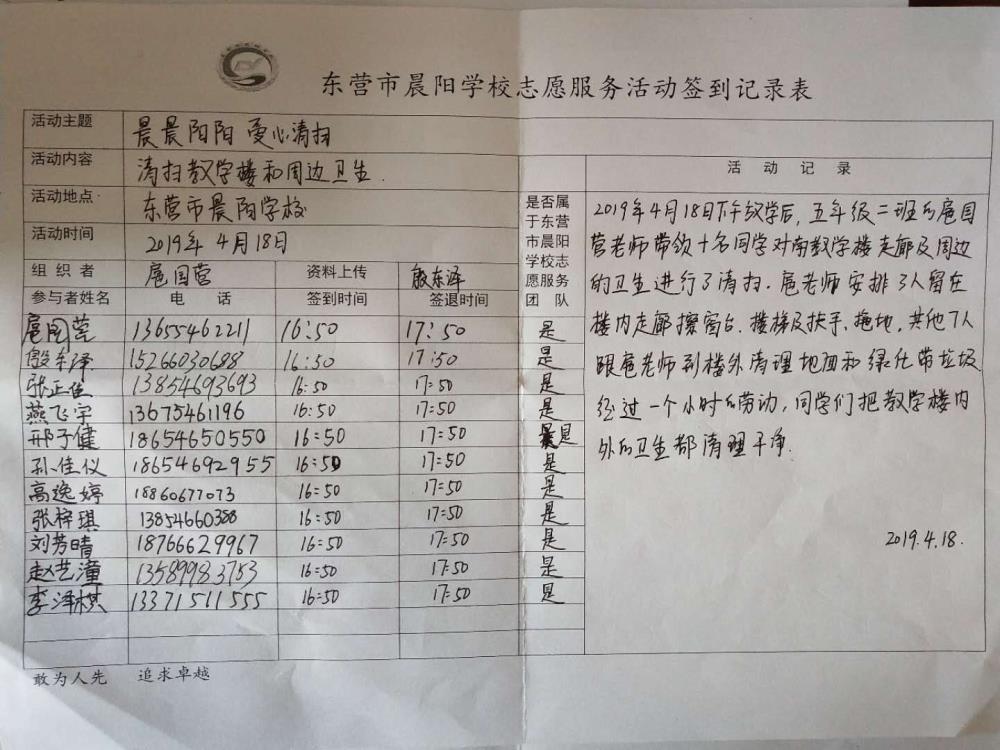 东营市晨阳学校志愿服务活动签到记录表
活动主题 晨晨阳阳 爱心清扫
活动内容 清扫教学楼和周边卫生.
活动地点 东营市晨阳学校
活动时间 2019年4月18日
组织者 扈国营 资料上传 殷东泽
参与者姓名 电话 签到时间 签退时间
是否属
于东营
市晨阳
学校志
愿服务
团队
扈国营 13655462211 16:50 17:50 是
殷东泽 15266030688 16:50 17:50 是
张正佳 13854693693 16:50 17:50 是
燕飞宇 13675461196 16:50 17:50 是
邢子健 18654650550 16:50 17:50 是
孙佳仪 18654692955 16:50 17:50 是
高逸婷 18860677073 16:50 17:50 是
张梓琪 13854660388 16:50 17:50 是
刘芳晴 18766629967 16:50 17:50 是
赵艺潼 13589983753 16:50 17:50 是
李泽棋 13371511555 16:50 17:50 是
活动记录
2019年4月18日下午放学后,五年级二班的扈国
营老师带领十名同学对南教学楼走廊及周边
的卫生进行了清扫.扈老师安排3人留在
楼内走廊擦窗台、楼梯及扶手、拖地,其他7人
跟扈老师到楼外清理地面和绿化带垃圾
经过一个小时的劳动,同学们把教学楼内
外的卫生都清理干净.
2019.4.18.
敢为人先 追求卓越